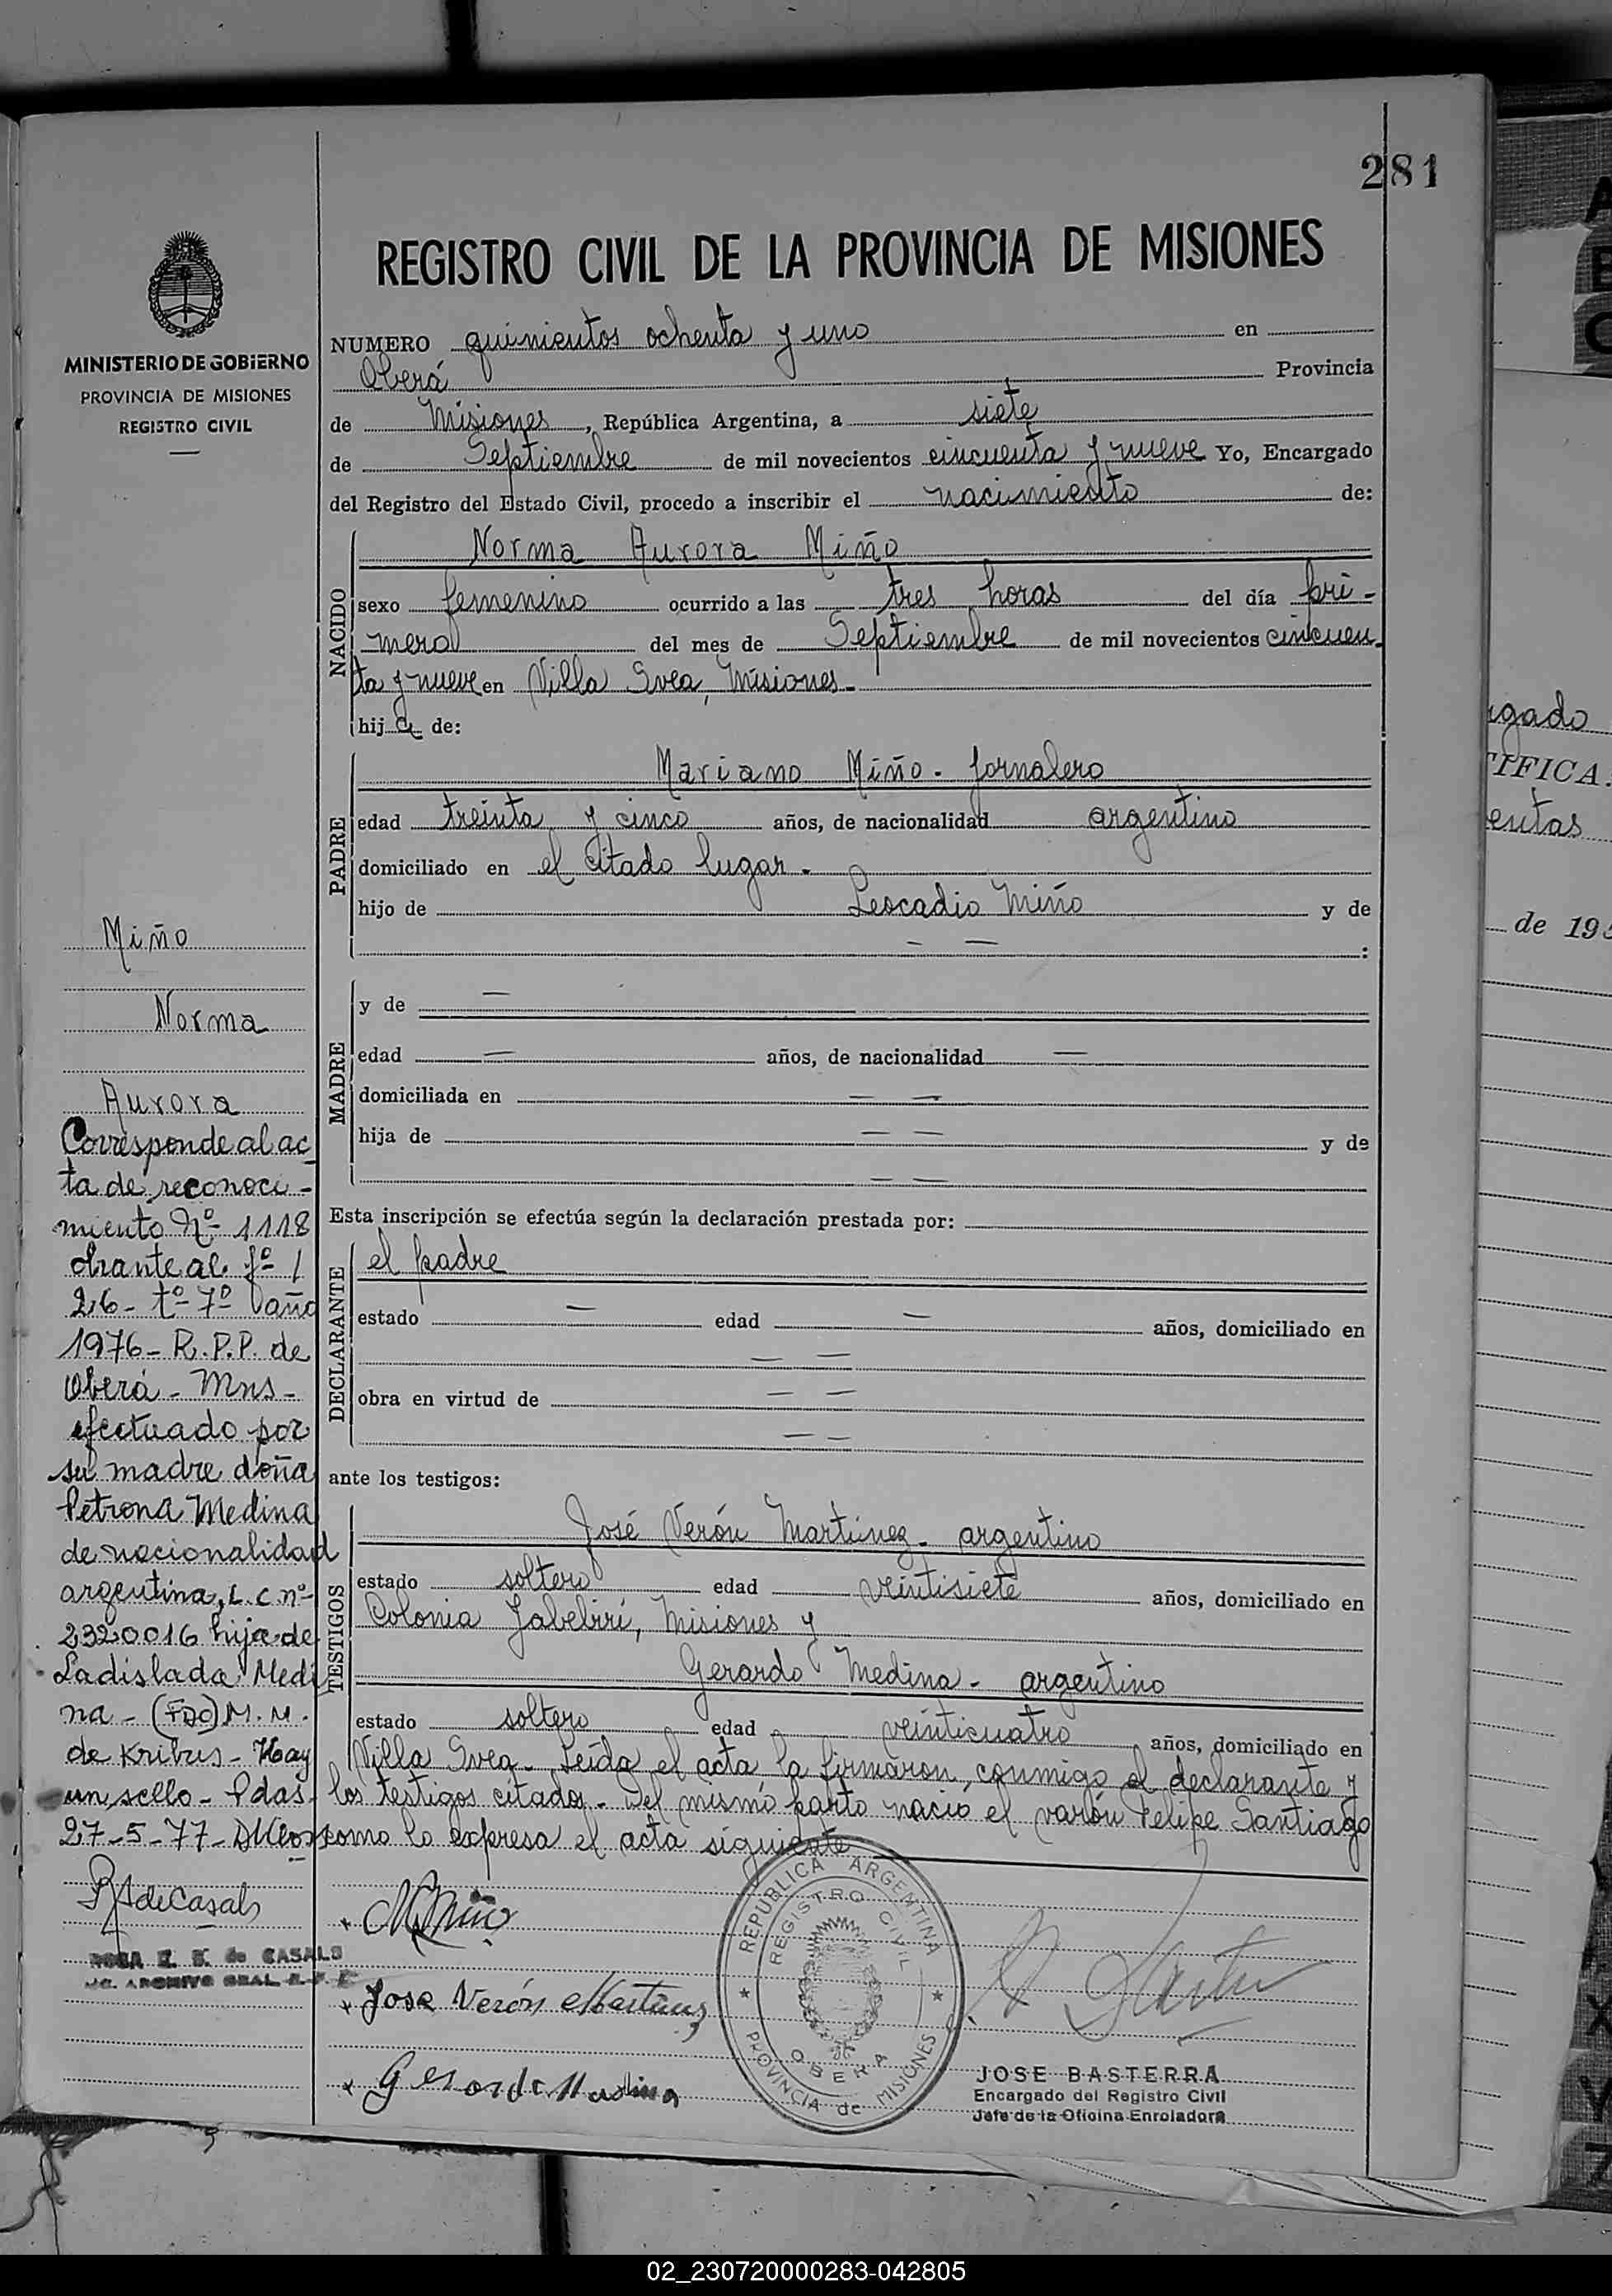 281
REGISTRO CIVIL DE LA PROVINCIA DE MISIONES
MINISTERIO DE GOBIERNO
PROVINCIA DE MISIONES
REGISTRO CIVIL
NUMERO quinientos ochenta y uno en
Oberá Provincia
de Misiones, República Argentina, a siete
de Septiembre de mil novecientos cincuenta y nueve Yo, Encargado
del Registro del Estado Civil, procedo a inscribir el nacimiento de:
NACIDO
Norma Aurora Miño
sexo femenino ocurrido a las tres horas del día pri-
mero del mes de Septiembre de mil novecientos cincuen-
ta y nueve en Villa Svea, Misiones-
hija de:
PADRE
Mariano Miño - Jornalero
edad treinta y cinco años, de nacionalidad argentino
domiciliado en el citado lugar -
hijo de Leocadio Miño y de
— — :
MADRE
y de —
edad — años, de nacionalidad —
domiciliada en — —
hija de — — y de
— —
Esta inscripción se efectúa según la declaración prestada por:
DECLARANTE
el padre
estado — edad — años, domiciliado en
— —
obra en virtud de — —
— —
ante los testigos:
TESTIGOS
José Verón Martínez - argentino
estado soltero edad veintisiete años, domiciliado en
Colonia Yabebirí, Misiones y
Gerardo Medina - argentino
estado soltero edad veinticuatro años, domiciliado en
Villa Svea - Leída el acta, la firmaron, conmigo el declarante y
los testigos citados - Del mismo parto nació el varón Felipe Santiago
como lo expresa el acta siguiente
Miño
Norma
Aurora
Corresponde al ac-
ta de reconoci-
miento Nº 1118
obrante al fº 1
26 - tº 7º año
1976 - R.P.P. de
Oberá - Mns -
efectuado por
su madre doña
Petrona Medina
de nacionalidad
argentina, L.C. nº
2320016 hija de
Ladislada Medi
na - (FDO) M. M.
de Kribus - Hay
un sello - Pdas.
27-5-77-
R de Casals
ROSA E. S. de CASALS
ARCHIVO GRAL.
M Miño
Jose Verón Martinez
Gerardo Medina
REPUBLICA ARGENTINA
REGISTRO CIVIL
OBERA
PROVINCIA de MISIONES
JOSE BASTERRA
Encargado del Registro Civil
Jefe de la Oficina Enroladora
rgado
TIFICA.
entas
de 195
A
B
C
X
Y
Z
02_230720000283-042805